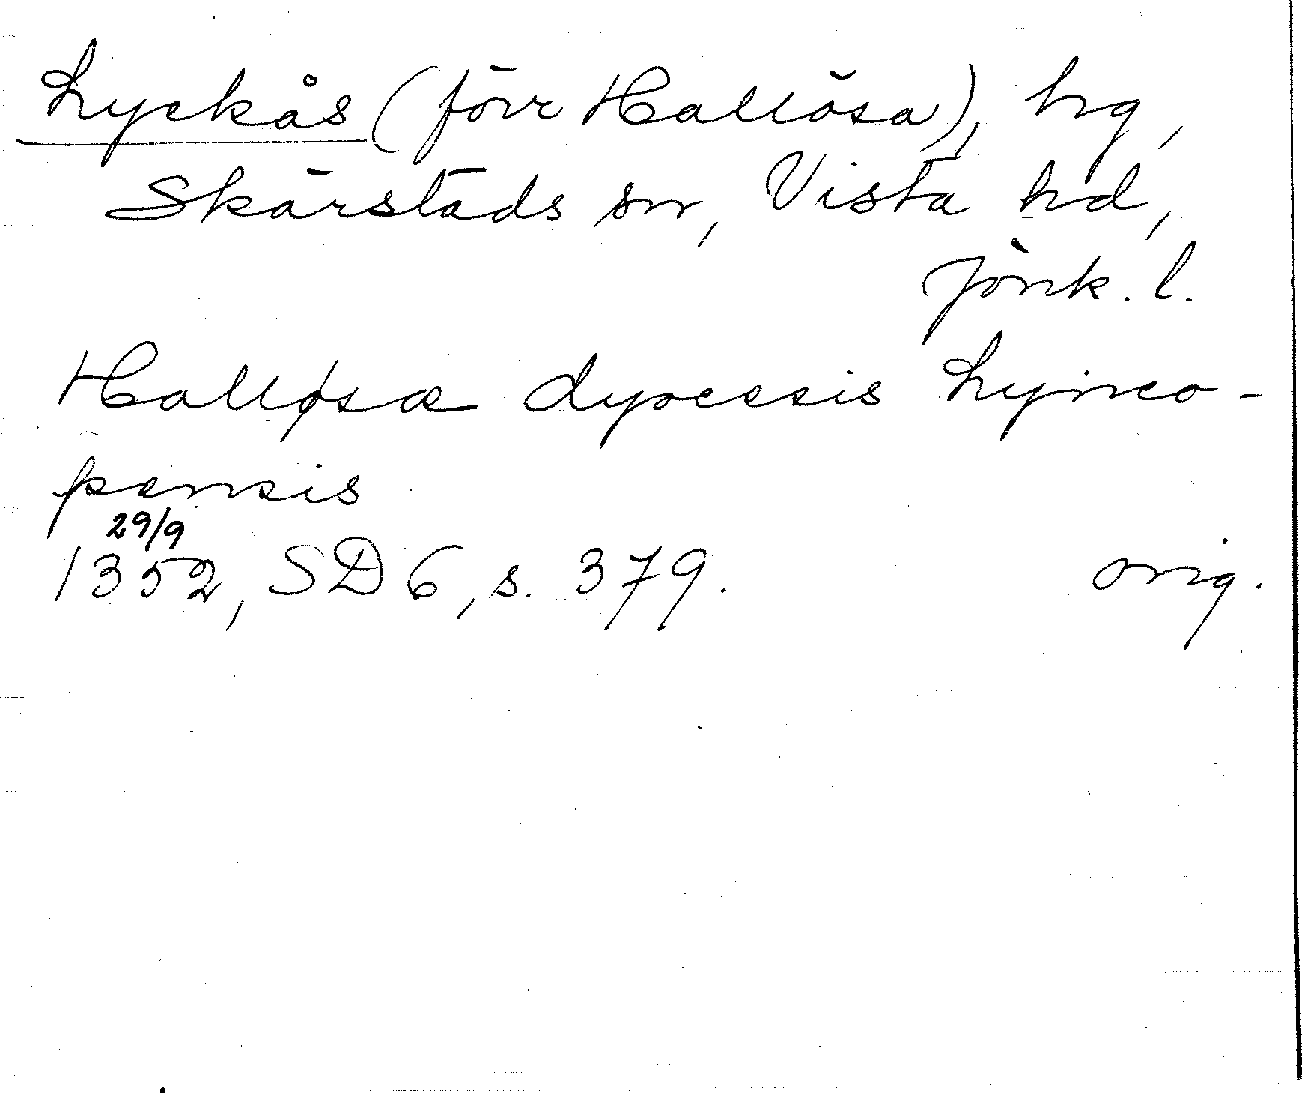 Lyckås (förr Hallösa), hg,
Skärstads sn, Vista hd,
Jönk. l.
Halløsæ dyocesis Lynco-
pensis
29/9
1352, SD 6, s. 379. orig.